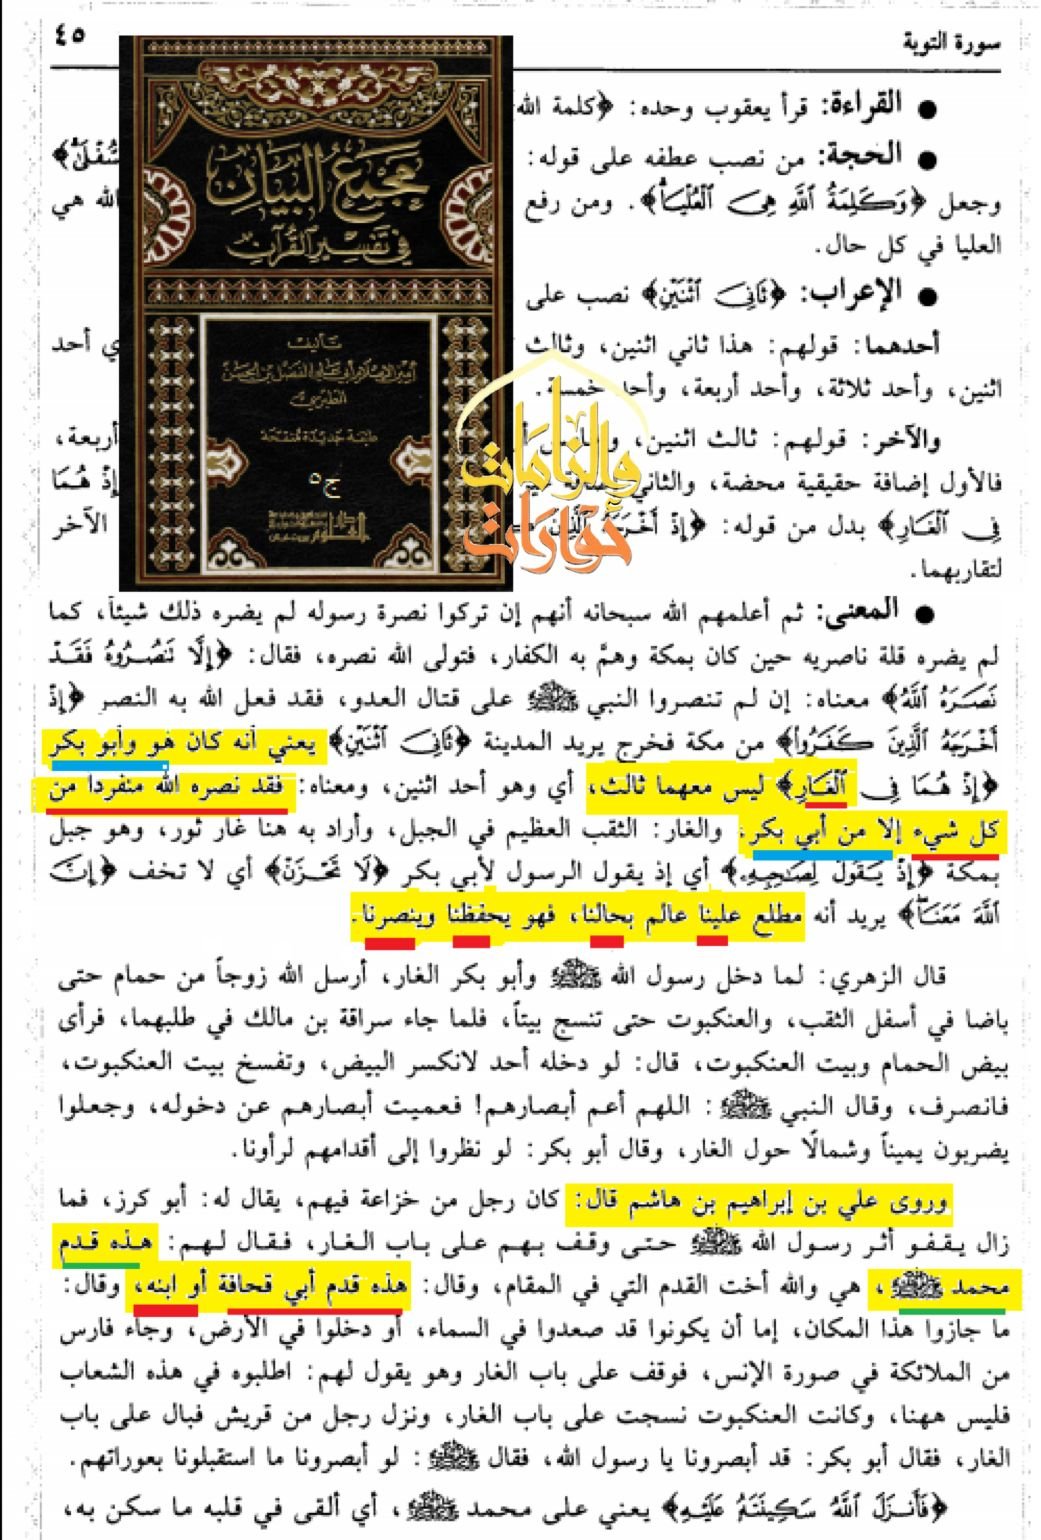 سورة التوبة
٤٥
● القراءة: قرأ يعقوب وحده: ﴿كلمة الله
● الحجة: من نصب عطفه على قوله:
سُّفْلَىٰ﴾
وجعل ﴿وَكَلِمَةُ ٱللَّهِ هِىَ ٱلْعُلْيَا﴾. ومن رفع
الله هي
العليا في كل حال.
● الإعراب: ﴿ثَانِىَ ٱثْنَيْنِ﴾ نصب على
أحدهما: قولهم: هذا ثاني اثنين، وثالث
ي أحد
اثنين، وأحد ثلاثة، وأحد أربعة، وأحد خمسة.
والآخر: قولهم: ثالث اثنين،
أربعة،
فالأول إضافة حقيقية محضة، والثاني
إِذْ هُمَا
فِى ٱلْغَارِ﴾ بدل من قوله: ﴿إِذْ أَخْرَجَهُ ٱلَّذِينَ
الآخر
لتقاربهما.
مجمع البيان
في تفسير القرآن
تأليف
أمين الإسلام أبي علي الفضل بن الحسن
الطبرسي
طبعة جديدة منقحة
ج٥
والزامات
حوارات
● المعنى: ثم أعلمهم الله سبحانه أنهم إن تركوا نصرة رسوله لم يضره ذلك شيئاً، كما
لم يضره قلة ناصريه حين كان بمكة وهمَّ به الكفار، فتولى الله نصره، فقال: ﴿إِلَّا نَصُرُوهُ فَقَدْ
نَصَرَهُ ٱللَّهُ﴾ معناه: إن لم تنصروا النبي ﷺ على قتال العدو، فقد فعل الله به النصر ﴿إِذْ
أَخْرَجَهُ ٱلَّذِينَ كَفَرُوا﴾ من مكة فخرج يريد المدينة ﴿ثَانِىَ ٱثْنَيْنِ﴾ يعني أنه كان هو وأبو بكر
﴿إِذْ هُمَا فِى ٱلْغَارِ﴾ ليس معهما ثالث، أي وهو أحد اثنين، ومعناه: فقد نصره الله منفردا من
كل شيء إلا من أبي بكر، والغار: الثقب العظيم في الجبل، وأراد به هنا غار ثور، وهو جبل
بمكة ﴿إِذْ يَقُولُ لِصَاحِبِهِ﴾ أي إذ يقول الرسول لأبي بكر ﴿لَا تَحْزَنْ﴾ أي لا تخف ﴿إِنَّ
ٱللَّهَ مَعَنَا﴾ يريد أنه مطلع علينا عالم بحالنا، فهو يحفظنا وينصرنا.
قال الزهري: لما دخل رسول الله ﷺ وأبو بكر الغار، أرسل الله زوجاً من حمام حتى
باضا في أسفل الثقب، والعنكبوت حتى تنسج بيتاً، فلما جاء سراقة بن مالك في طلبهما، فرأى
بيض الحمام وبيت العنكبوت، قال: لو دخله أحد لانكسر البيض، وتفسخ بيت العنكبوت،
فانصرف، وقال النبي ﷺ: اللهم أعم أبصارهم! فعميت أبصارهم عن دخوله، وجعلوا
يضربون يميناً وشمالًا حول الغار، وقال أبو بكر: لو نظروا إلى أقدامهم لرأونا.
وروى علي بن إبراهيم بن هاشم قال: كان رجل من خزاعة فيهم، يقال له: أبو كرز، فما
زال يقفو أثر رسول الله ﷺ حتى وقف بهم على باب الغار، فقال لهم: هذه قدم
محمد ﷺ، هي والله أخت القدم التي في المقام، وقال: هذه قدم أبي قحافة أو ابنه، وقال:
ما جازوا هذا المكان، إما أن يكونوا قد صعدوا في السماء، أو دخلوا في الأرض، وجاء فارس
من الملائكة في صورة الإنس، فوقف على باب الغار وهو يقول لهم: اطلبوه في هذه الشعاب
فليس ههنا، وكانت العنكبوت نسجت على باب الغار، ونزل رجل من قريش فبال على باب
الغار، فقال أبو بكر: قد أبصرونا يا رسول الله، فقال ﷺ: لو أبصرونا ما استقبلونا بعوراتهم.
﴿فَأَنزَلَ ٱللَّهُ سَكِينَتَهُ عَلَيْهِ﴾ يعني على محمد ﷺ، أي ألقى في قلبه ما سكن به،